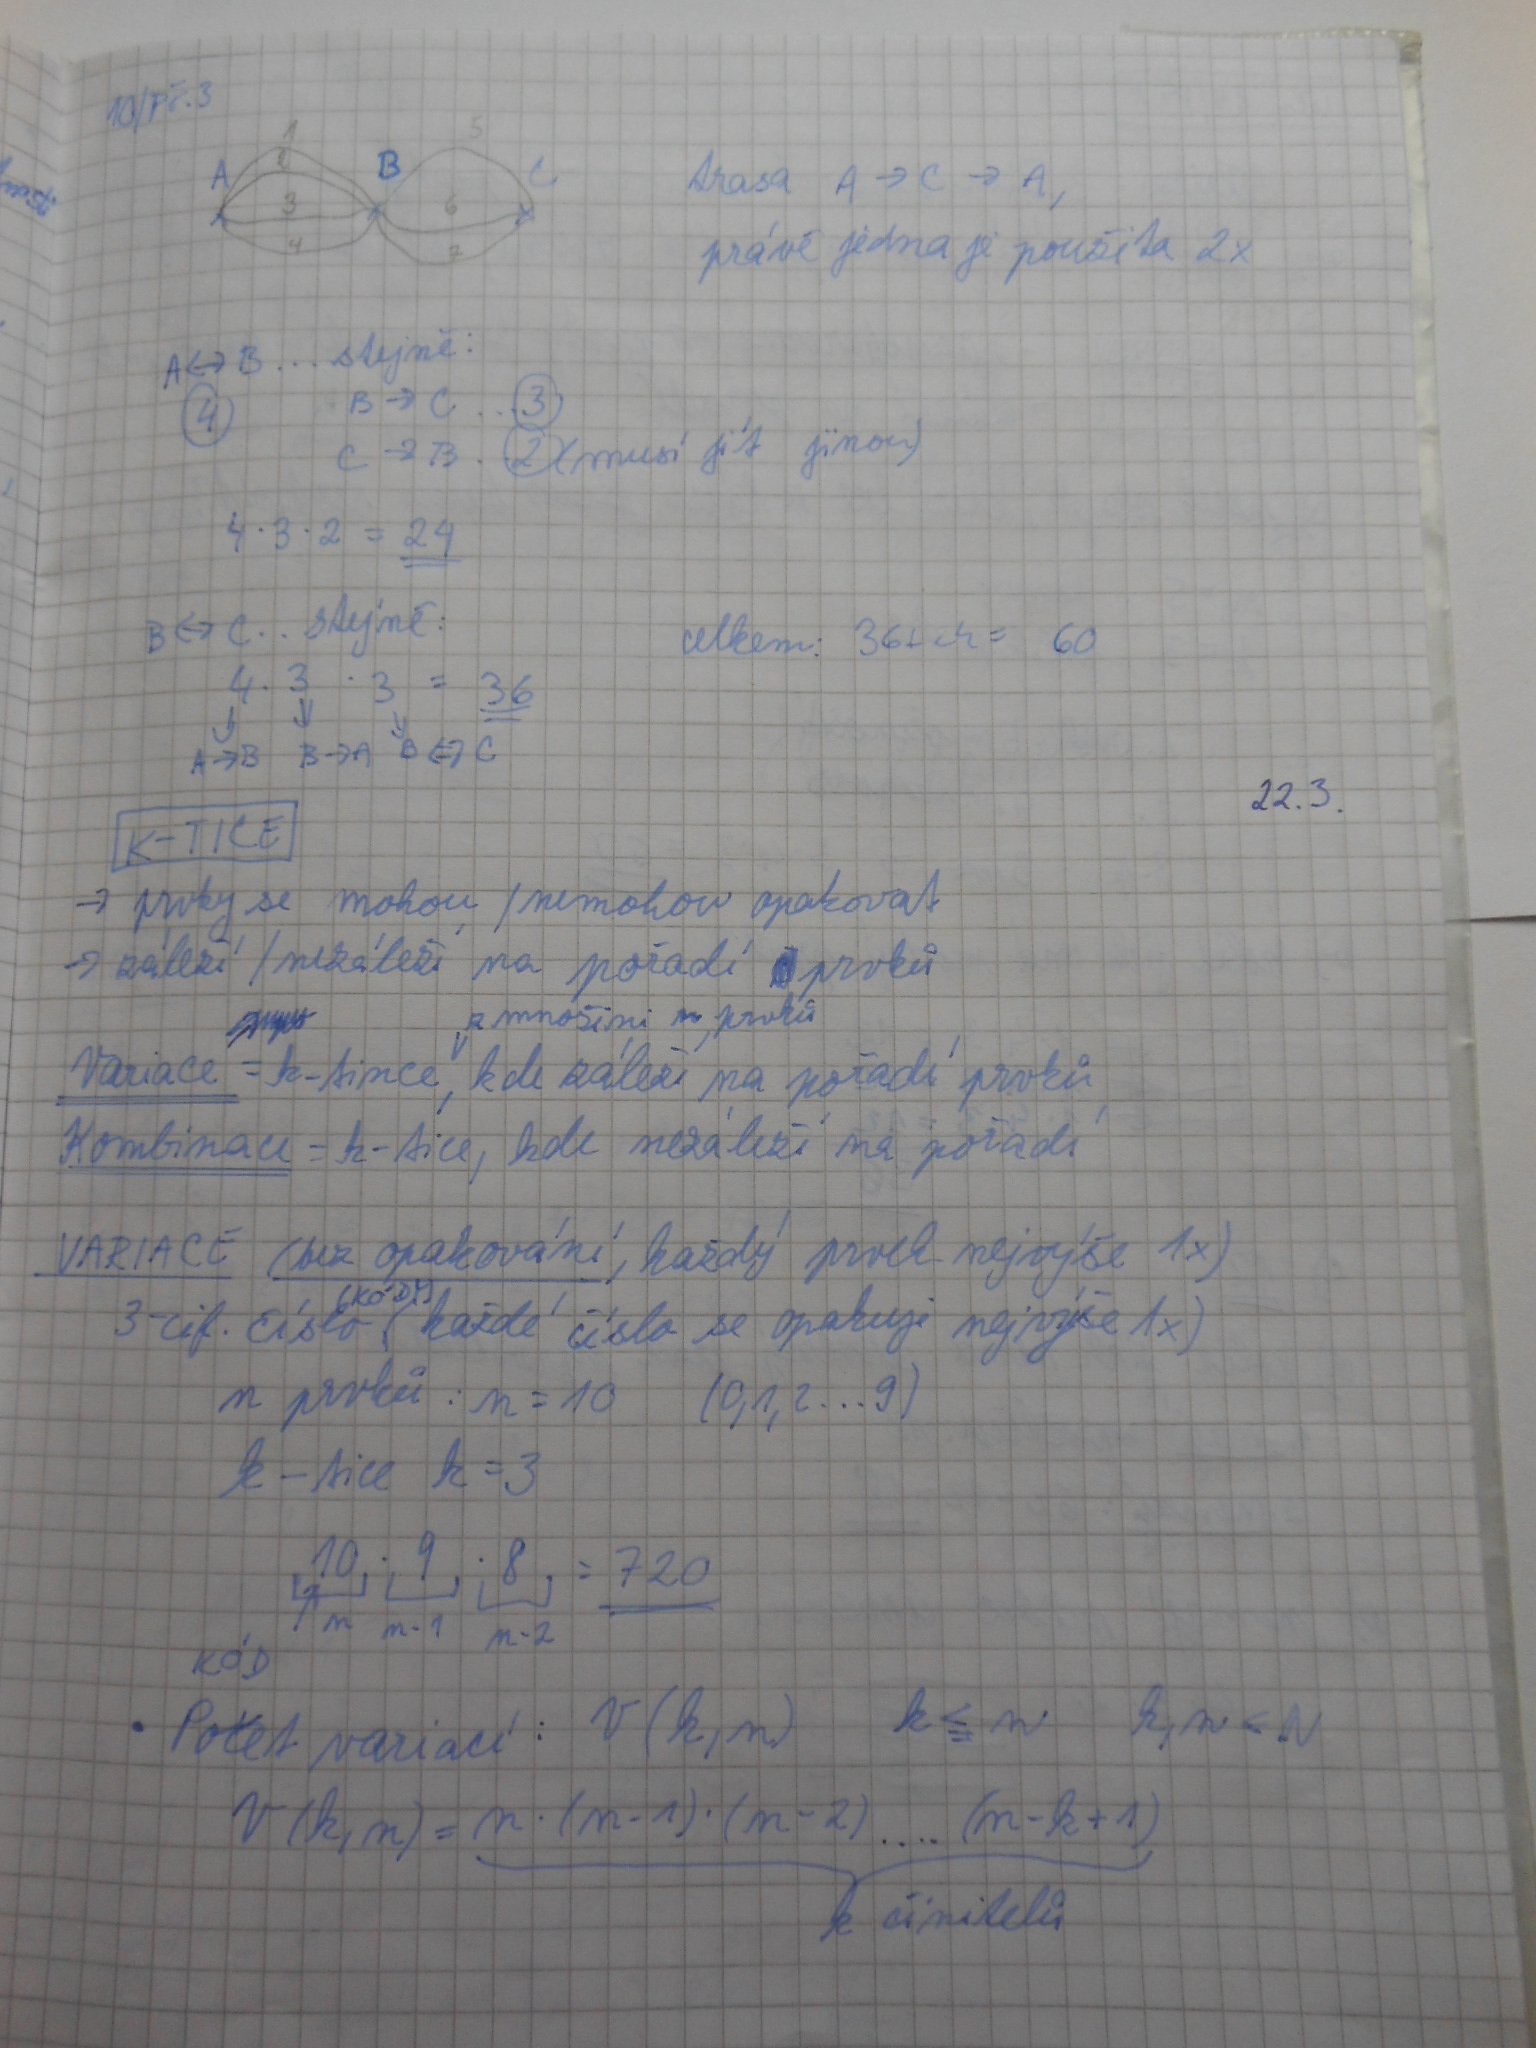 10/Př.3
1
2
3
4
5
6
7
A B C
trasa A → C → A,
právě jedna je použita 2x
A ↔ B ... stejně:
4 B → C ... 3
C → B .. 2 (musí jít jinou)
4 · 3 · 2 = 24
B ↔ C .. stejně:
celkem: 36+24 = 60
4 · 3 · 3 = 36
A→B B→A B↔C
22.3.
K-TICE
→ prvky se mohou /nemohou opakovat
→ záleží /nezáleží na pořadí prvků
z množini n prvků
Variace = k-tince, kde záleží na pořadí prvků
Kombinace = k-tice, kde nezáleží na pořadí
VARIACE (bez opakování, každý prvek nejvýše 1x)
(KÓDY)
3-cif. číslo (každé číslo se opakuje nejvýše 1x)
n prvků : n = 10 (0,1,2...9)
k-tice k = 3
10 · 9 · 8 = 720
n n-1 n-2
KÓD
• Počet variací: V(k,n) k ≦ n k,n < N
V(k,n) = n·(n-1)·(n-2) .... (n-k+1)
k činitelů